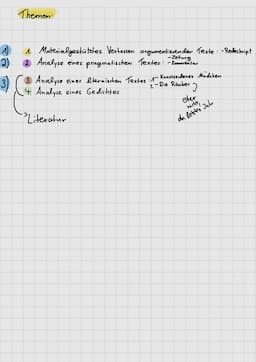 Themen:
1) 1. Materialgestütztes Verfassen argumentierender Texte: - Redeskript
2) 2. Analyse eines pragmatischen Textes: - Zeitung
- Kommentar
3) 3. Analyse eines literarischen Textes 1 - Mädchen
2 - Die Räuber
4. Analyse eines Gedichtes
eher
Literatur